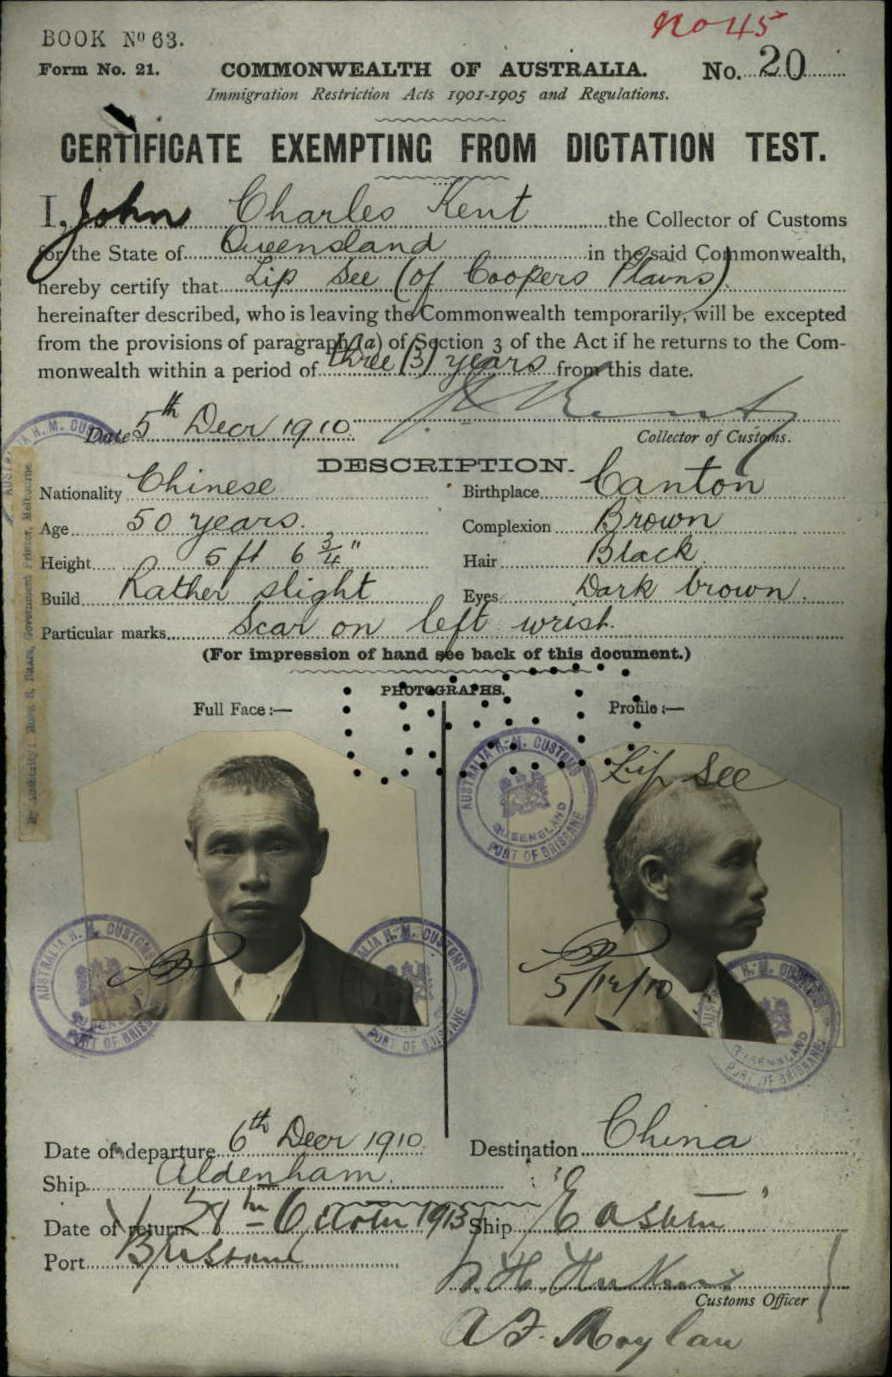 No 45
BOOK No 63.
Form No. 21. COMMONWEALTH OF AUSTRALIA. No. 20
Immigration Restriction Acts 1901-1905 and Regulations.
CERTIFICATE EXEMPTING FROM DICTATION TEST.
I, John Charles Kent the Collector of Customs
for the State of Queensland in the said Commonwealth,
hereby certify that Lip See (of Coopers Plains)
hereinafter described, who is leaving the Commonwealth temporarily, will be excepted
from the provisions of paragraph (a) of Section 3 of the Act if he returns to the Com-
monwealth within a period of three (3) years from this date.
Date 5th Decr 1910. J Kent
Collector of Customs.
DESCRIPTION.
Nationality Chinese Birthplace Canton
Age 50 years. Complexion Brown
Height 5 ft 6 3/4" Hair Black.
Build Rather slight Eyes Dark brown.
Particular marks Scar on left wrist.
(For impression of hand see back of this document.)
PHOTOGRAPHS.
Full Face:— Profile:—
Lip See
AUSTRALIA H.M. CUSTOMS
QUEENSLAND
PORT OF BRISBANE
5/12/10
Date of departure 6th Decr 1910. Destination China
Ship Aldenham.
Date of return 1913 Ship 'Eastern'
Port Brisbane
Customs Officer
A F. Moylan